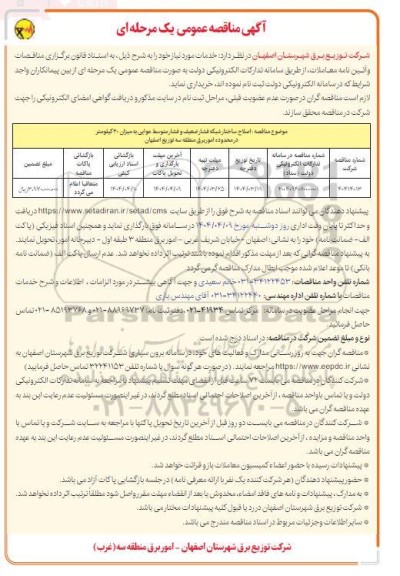 آگهی مناقصه عمومی یک مرحله ای
شرکت توزیع برق شهرستان اصفهان در نظر دارد: خدمات مورد نیاز خود را به شرح ذیل، به استناد قانون برگزاری مناقصات
و آئین نامه معاملات، از طریق سامانه تدارکات الکترونیکی دولت به صورت مناقصه عمومی یک مرحله ای از بین پیمانکاران واجد
شرایط که در سامانه الکترونیکی دولت ثبت نام نموده اند، خریداری نماید.
لازم است مناقصه گران در صورت عدم عضویت قبلی، مراحل ثبت نام در سایت مذکور و دریافت گواهی امضای الکترونیکی را جهت
شرکت در مناقصه محقق سازند.
موضوع مناقصه: اصلاح ساختار شبکه فشار ضعیف و فشار متوسط هوایی به میزان ۲۰ کیلومتر
در محدوده امور برق منطقه سه توزیع اصفهان
شماره مناقصه شرکت
شماره مناقصه در سامانه تدارکات الکترونیکی دولت (ستاد)
تاریخ توزیع دفترچه
مهلت تهیه دفترچه
آخرین مهلت بارگذاری و تحویل پاکات
بازگشائی اسناد ارزیابی کیفی
بازگشائی پاکات مناقصه
مبلغ تضمین
متعاقبا اعلام می گردد
پیشنهاد دهندگان می توانند اسناد مناقصه به شرح فوق را از طریق سایت https://www.setadiran.ir/setad/cms دریافت
و حداکثر تا پایان وقت اداری روز دوشنبه مورخ ۱۴۰۴/۰۴/۰۹ در سامانه فوق بارگذاری نماید و همچنین اسناد فیزیکی (پاکت
الف- ضمانت نامه) خود را به نشانی: اصفهان- خیابان شریف غربی – امور برق منطقه ۳ طبقه اول – دبیرخانه امور تحویل نمایند.
به پیشنهاد مناقصه گرانی که بعد از مهلت مذکور اقدام نموده باشند ترتیب اثر داده نخواهد شد. عدم ارسال پاکت الف (ضمانت نامه
بانکی) تا موعد اعلام شده موجب ابطال مدارک مناقصه گر می گردد.
شماره تلفن واحد مناقصات: ۰۳۱-۳۴۱۲۲۴۵۳ خانم سعیدی و جهت آگاهی بیشتر در مورد الزامات، اطلاعات و شرح خدمات
مناقصات با شماره تلفن اداره مهندسی: ۰۳۱-۳۴۱۲۲۴۴۰ آقای مهندس یاری
جهت انجام مراحل عضویت در سامانه: مرکز تماس ۴۱۹۳۴-۰۲۱ دفتر ثبت نام: ۸۸۹۶۹۷۳۷-۰۲۱ و ۸۵۱۹۳۷۶۸-۰۲۱ تماس
حاصل فرمائید.
نوع و مبلغ تضمین شرکت در مناقصه: در اسناد درج شده است.
* مناقصه گران جهت به روز رسانی مدارک و فعالیت های خود، در سامانه برون سپاری شرکت توزیع برق شهرستان اصفهان به
نشانی https://www.eepdc.ir مراجعه نمایند. (در صورت هر گونه سوال با شماره تلفن ۳۲۲۴۱۱۵۳ تماس حاصل فرمایید)
* شرکت کنندگان در مناقصه می بایست ۷۲ ساعت قبل از انقضای مهلت تسلیم پیشنهاد با مراجعه به سامانه تدارکات الکترونیکی
دولت و یا تماس با واحد مناقصه، از آخرین اصلاحات احتمالی اسناد مطلع گردند، در غیر اینصورت مسئولیت عدم رعایت این بند به
عهده مناقصه گران می باشد.
* شرکت کنندگان در مناقصه می بایست دو روز قبل از آخرین تاریخ تحویل پاکتها با مراجعه به سایت شرکت و یا تماس با
واحد مناقصه و مزایده، از آخرین اصلاحات احتمالی اسناد مطلع گردند، در غیر اینصورت مسئولیت عدم رعایت این بند به عهده
مناقصه گران می باشد.
* پیشنهادات رسیده با حضور اعضاء کمیسیون معاملات باز و قرائت خواهد شد.
* حضور پیشنهاد دهندگان (هر شرکت کننده یک نفر با ارائه معرفی نامه) در جلسه بازگشایی پاکات آزاد می باشد.
* به مدارک، پیشنهادات و نامه های فاقد امضاء، مخدوش یا بعد از انقضاء مهلت مقرر واصل شود مطلقا ترتیب اثر داده نخواهد شد.
* شرکت توزیع برق شهرستان اصفهان در رد یا قبول کلیه پیشنهادات مختار می باشد.
* سایر اطلاعات وجزئیات مربوط در اسناد مناقصه مندرج می باشد.
شرکت توزیع برق شهرستان اصفهان – امور برق منطقه سه (غرب)
ParsNamadData
۰۲۱-۸۸۳۴۹۶۷۰-۵